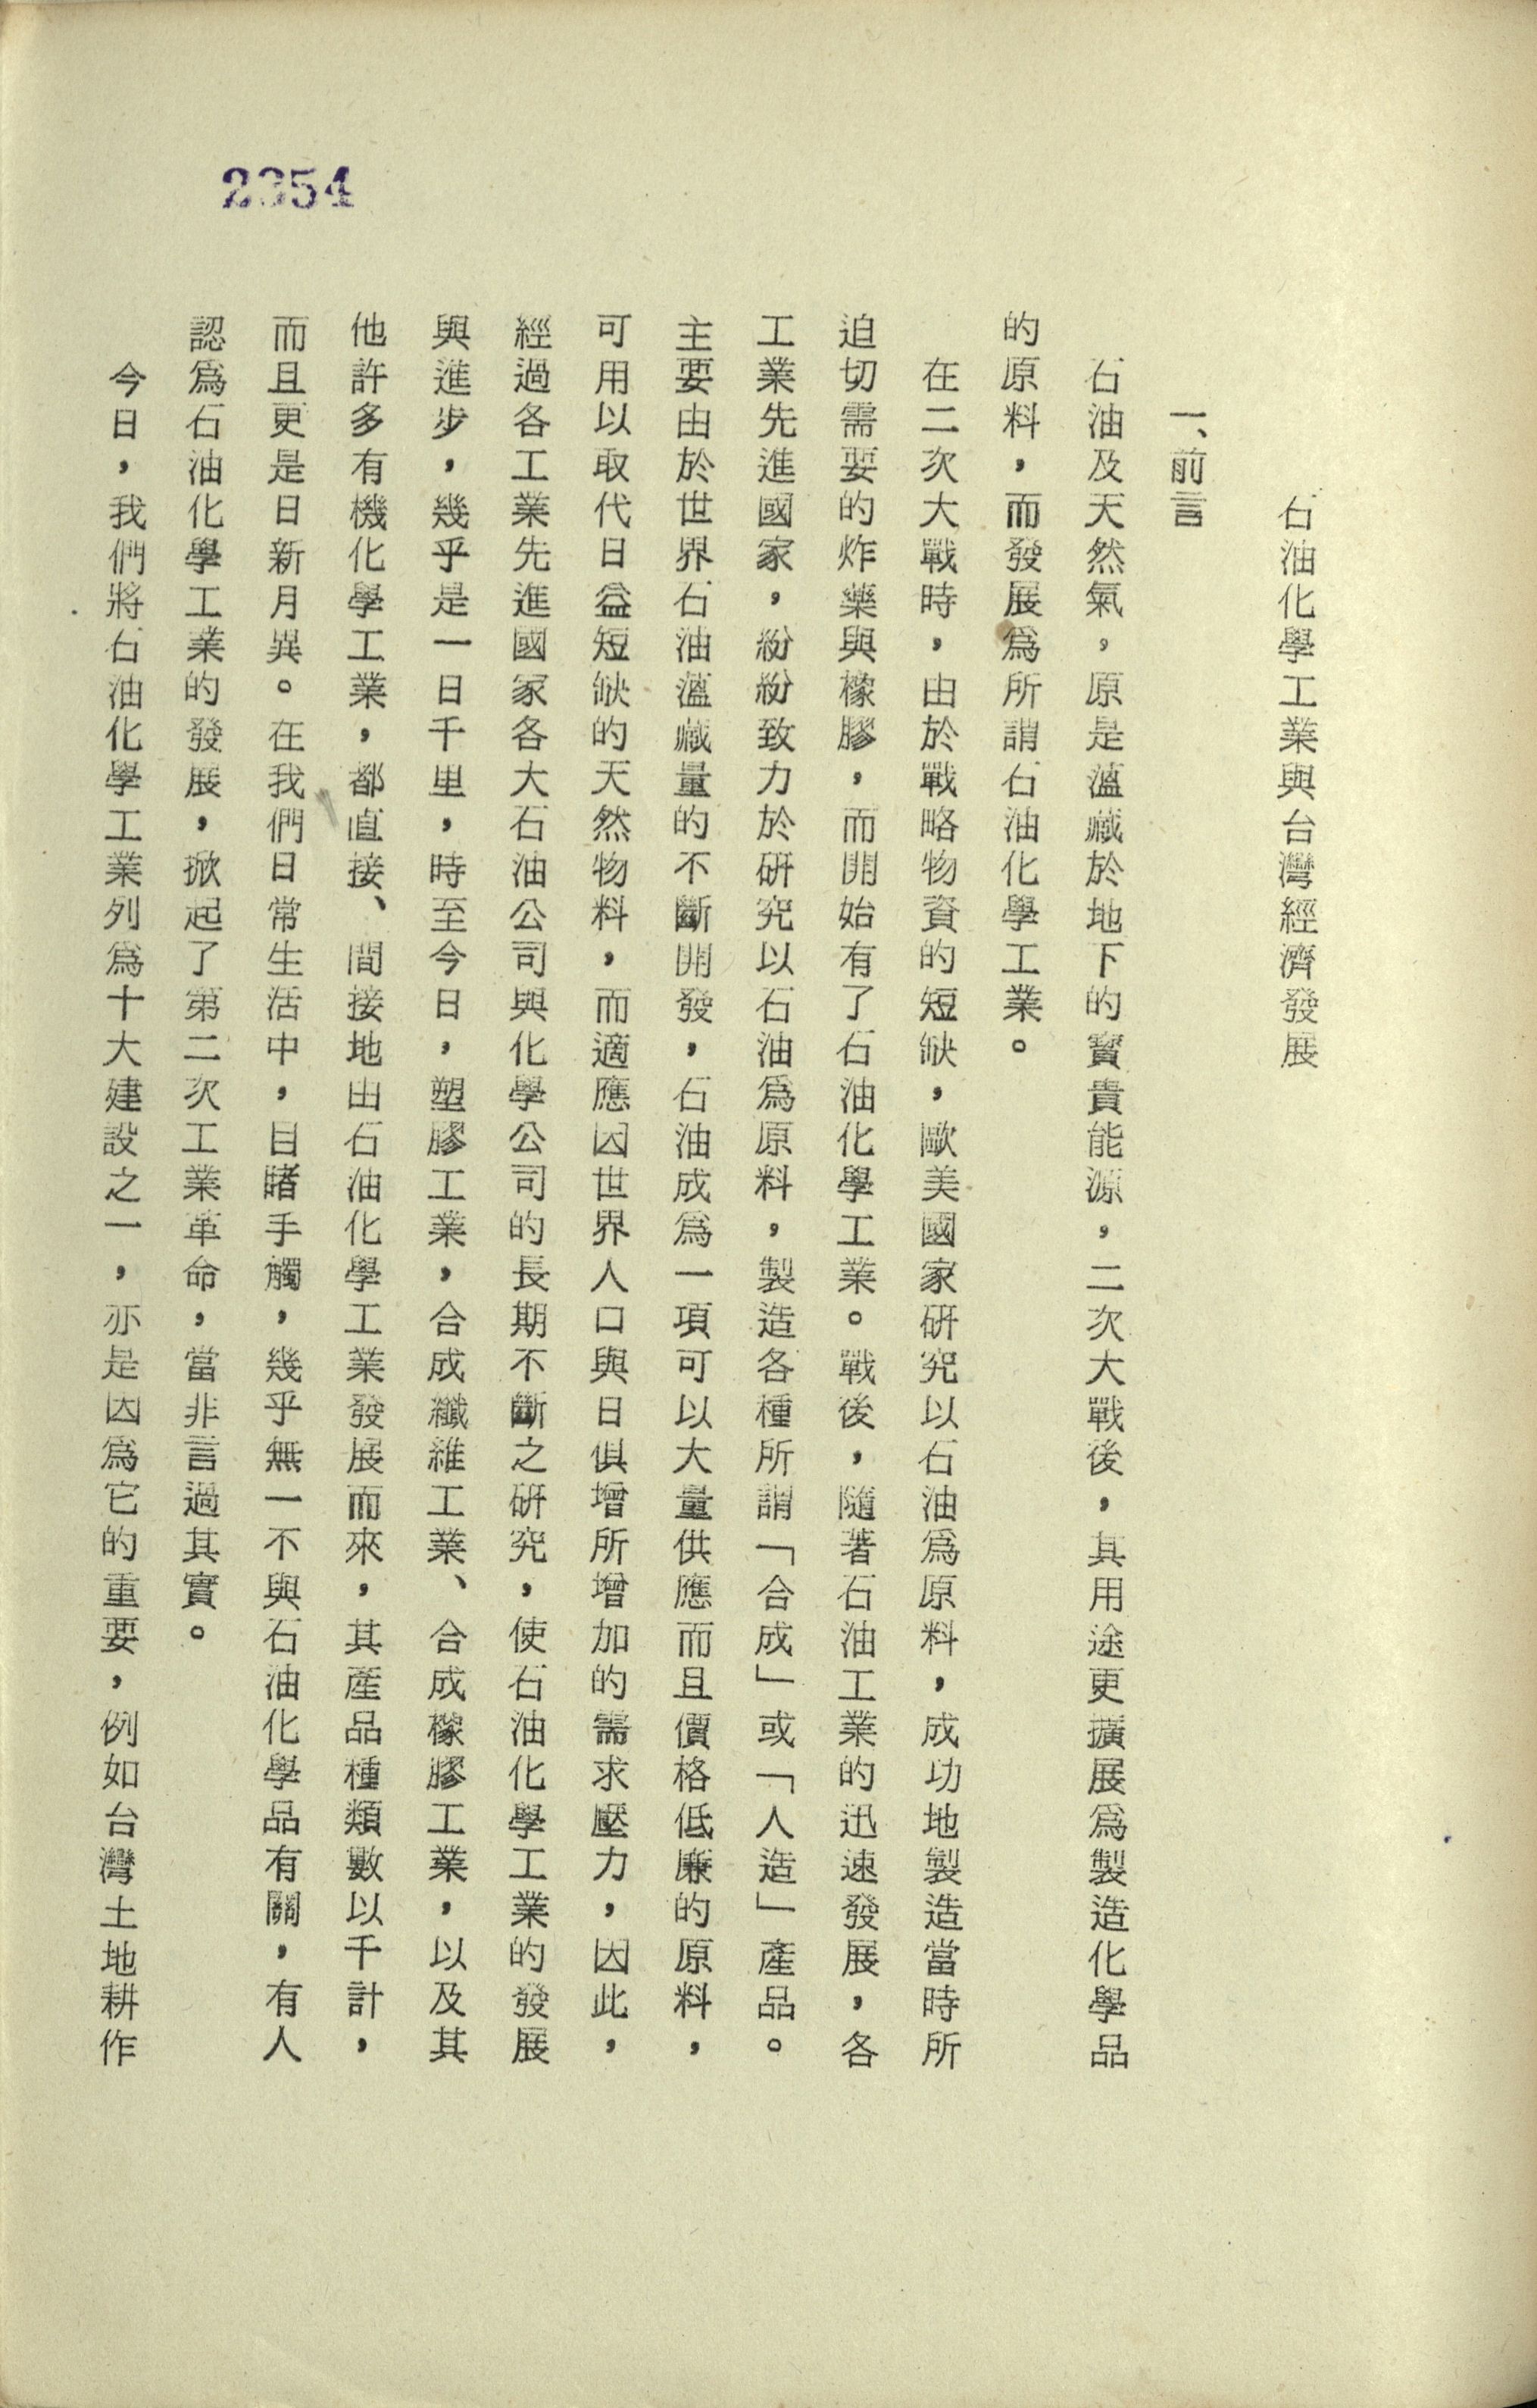 2354
石油化學工業與台灣經濟發展
一、前言
石油及天然氣，原是薀藏於地下的寳貴能源，二次大戰後，其用途更擴展爲製造化學品
的原料，而發展爲所謂石油化學工業。
在二次大戰時，由於戰略物資的短缺，歐美國家研究以石油爲原料，成功地製造當時所
迫切需要的炸藥與橡膠，而開始有了石油化學工業。戰後，隨著石油工業的迅速發展，各
工業先進國家，紛紛致力於研究以石油爲原料，製造各種所謂「合成」或「人造」產品。
主要由於世界石油薀藏量的不斷開發，石油成爲一項可以大量供應而且價格低廉的原料，
可用以取代日益短缺的天然物料，而適應因世界人口與日俱增所增加的需求壓力，因此，
經過各工業先進國家各大石油公司與化學公司的長期不斷之研究，使石油化學工業的發展
與進步，幾乎是一日千里，時至今日，塑膠工業，合成纖維工業、合成橡膠工業，以及其
他許多有機化學工業，都直接、間接地由石油化學工業發展而來，其產品種類數以千計，
而且更是日新月異。在我們日常生活中，目睹手觸，幾乎無一不與石油化學品有關，有人
認爲石油化學工業的發展，掀起了第二次工業革命，當非言過其實。
今日，我們將石油化學工業列爲十大建設之一，亦是因爲它的重要，例如台灣土地耕作